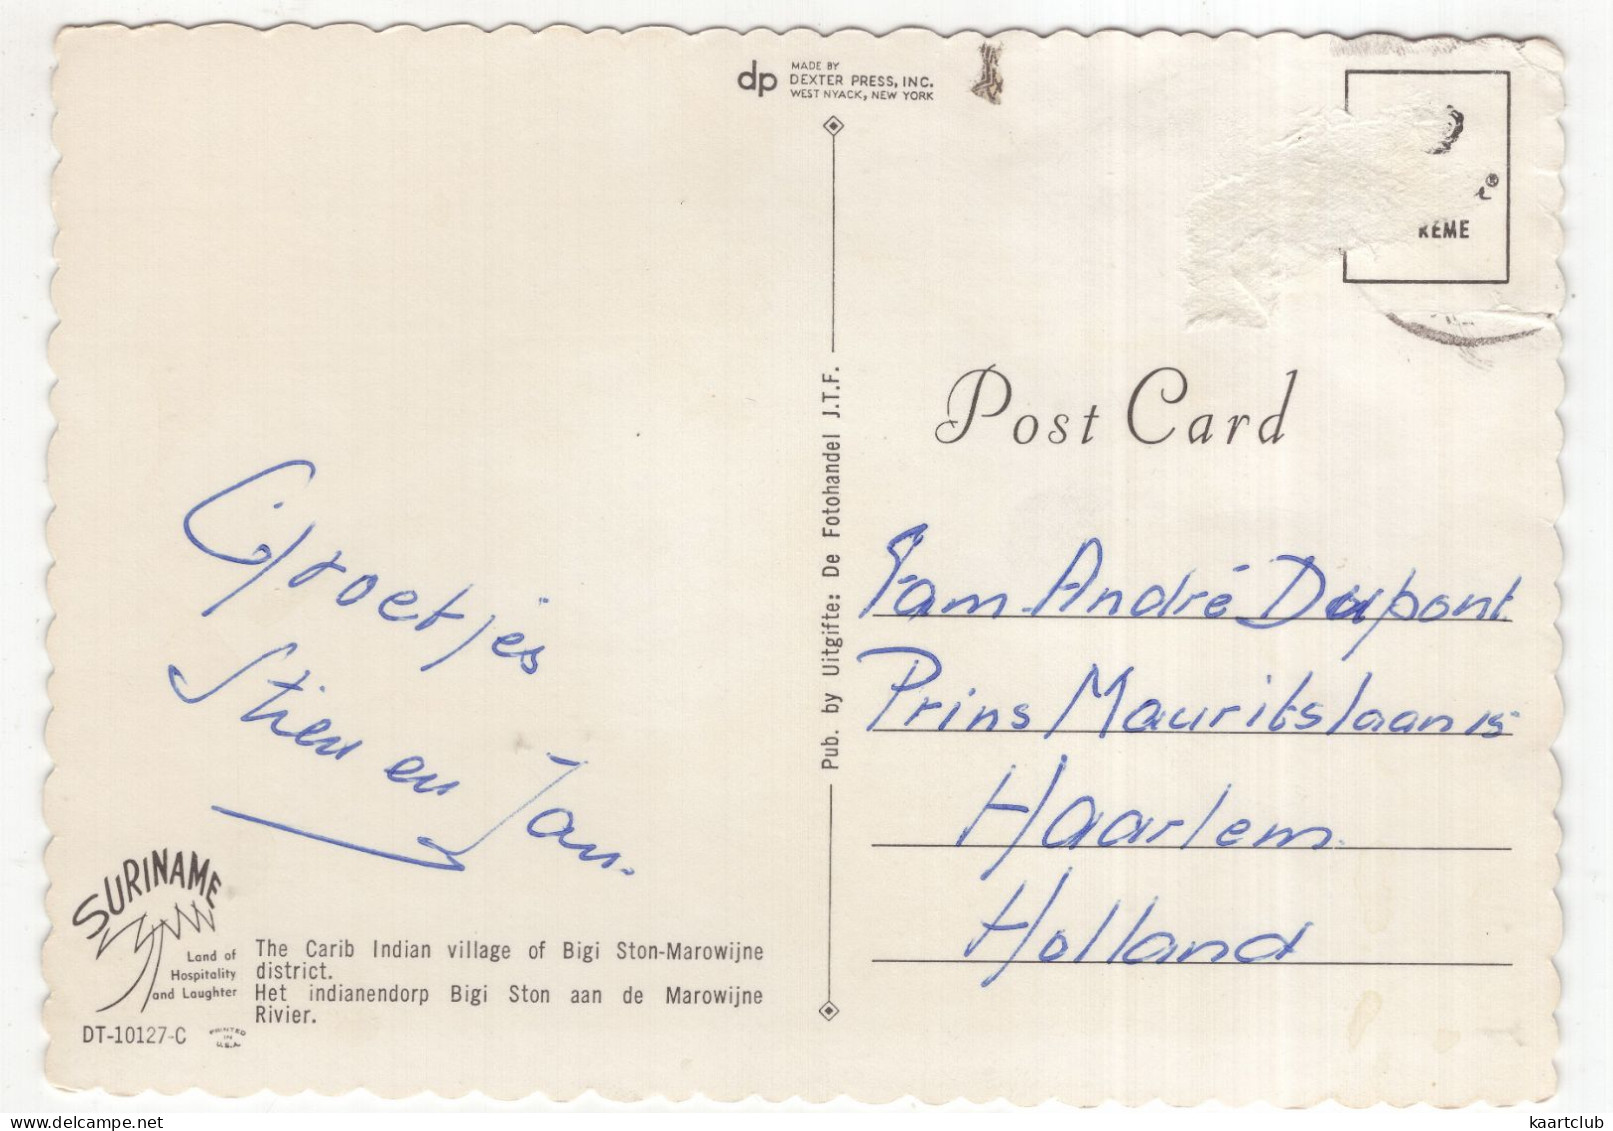 dp MADE BY
DEXTER PRESS, INC.
WEST NYACK, NEW YORK
REME
Post Card
Pub. by Uitgifte: De Fotohandel J.T.F.
Groetjes
Stien en Jan.
Fam. André Dupont
Prins Mauritslaan 15
Haarlem.
Holland
SURINAME
Land of
Hospitality
and Laughter
The Carib Indian village of Bigi Ston-Marowijne
district.
Het indianendorp Bigi Ston aan de Marowijne
Rivier.
DT-10127-C
PRINTED
IN
U.S.A.
www.delcampe.net
kaartclub